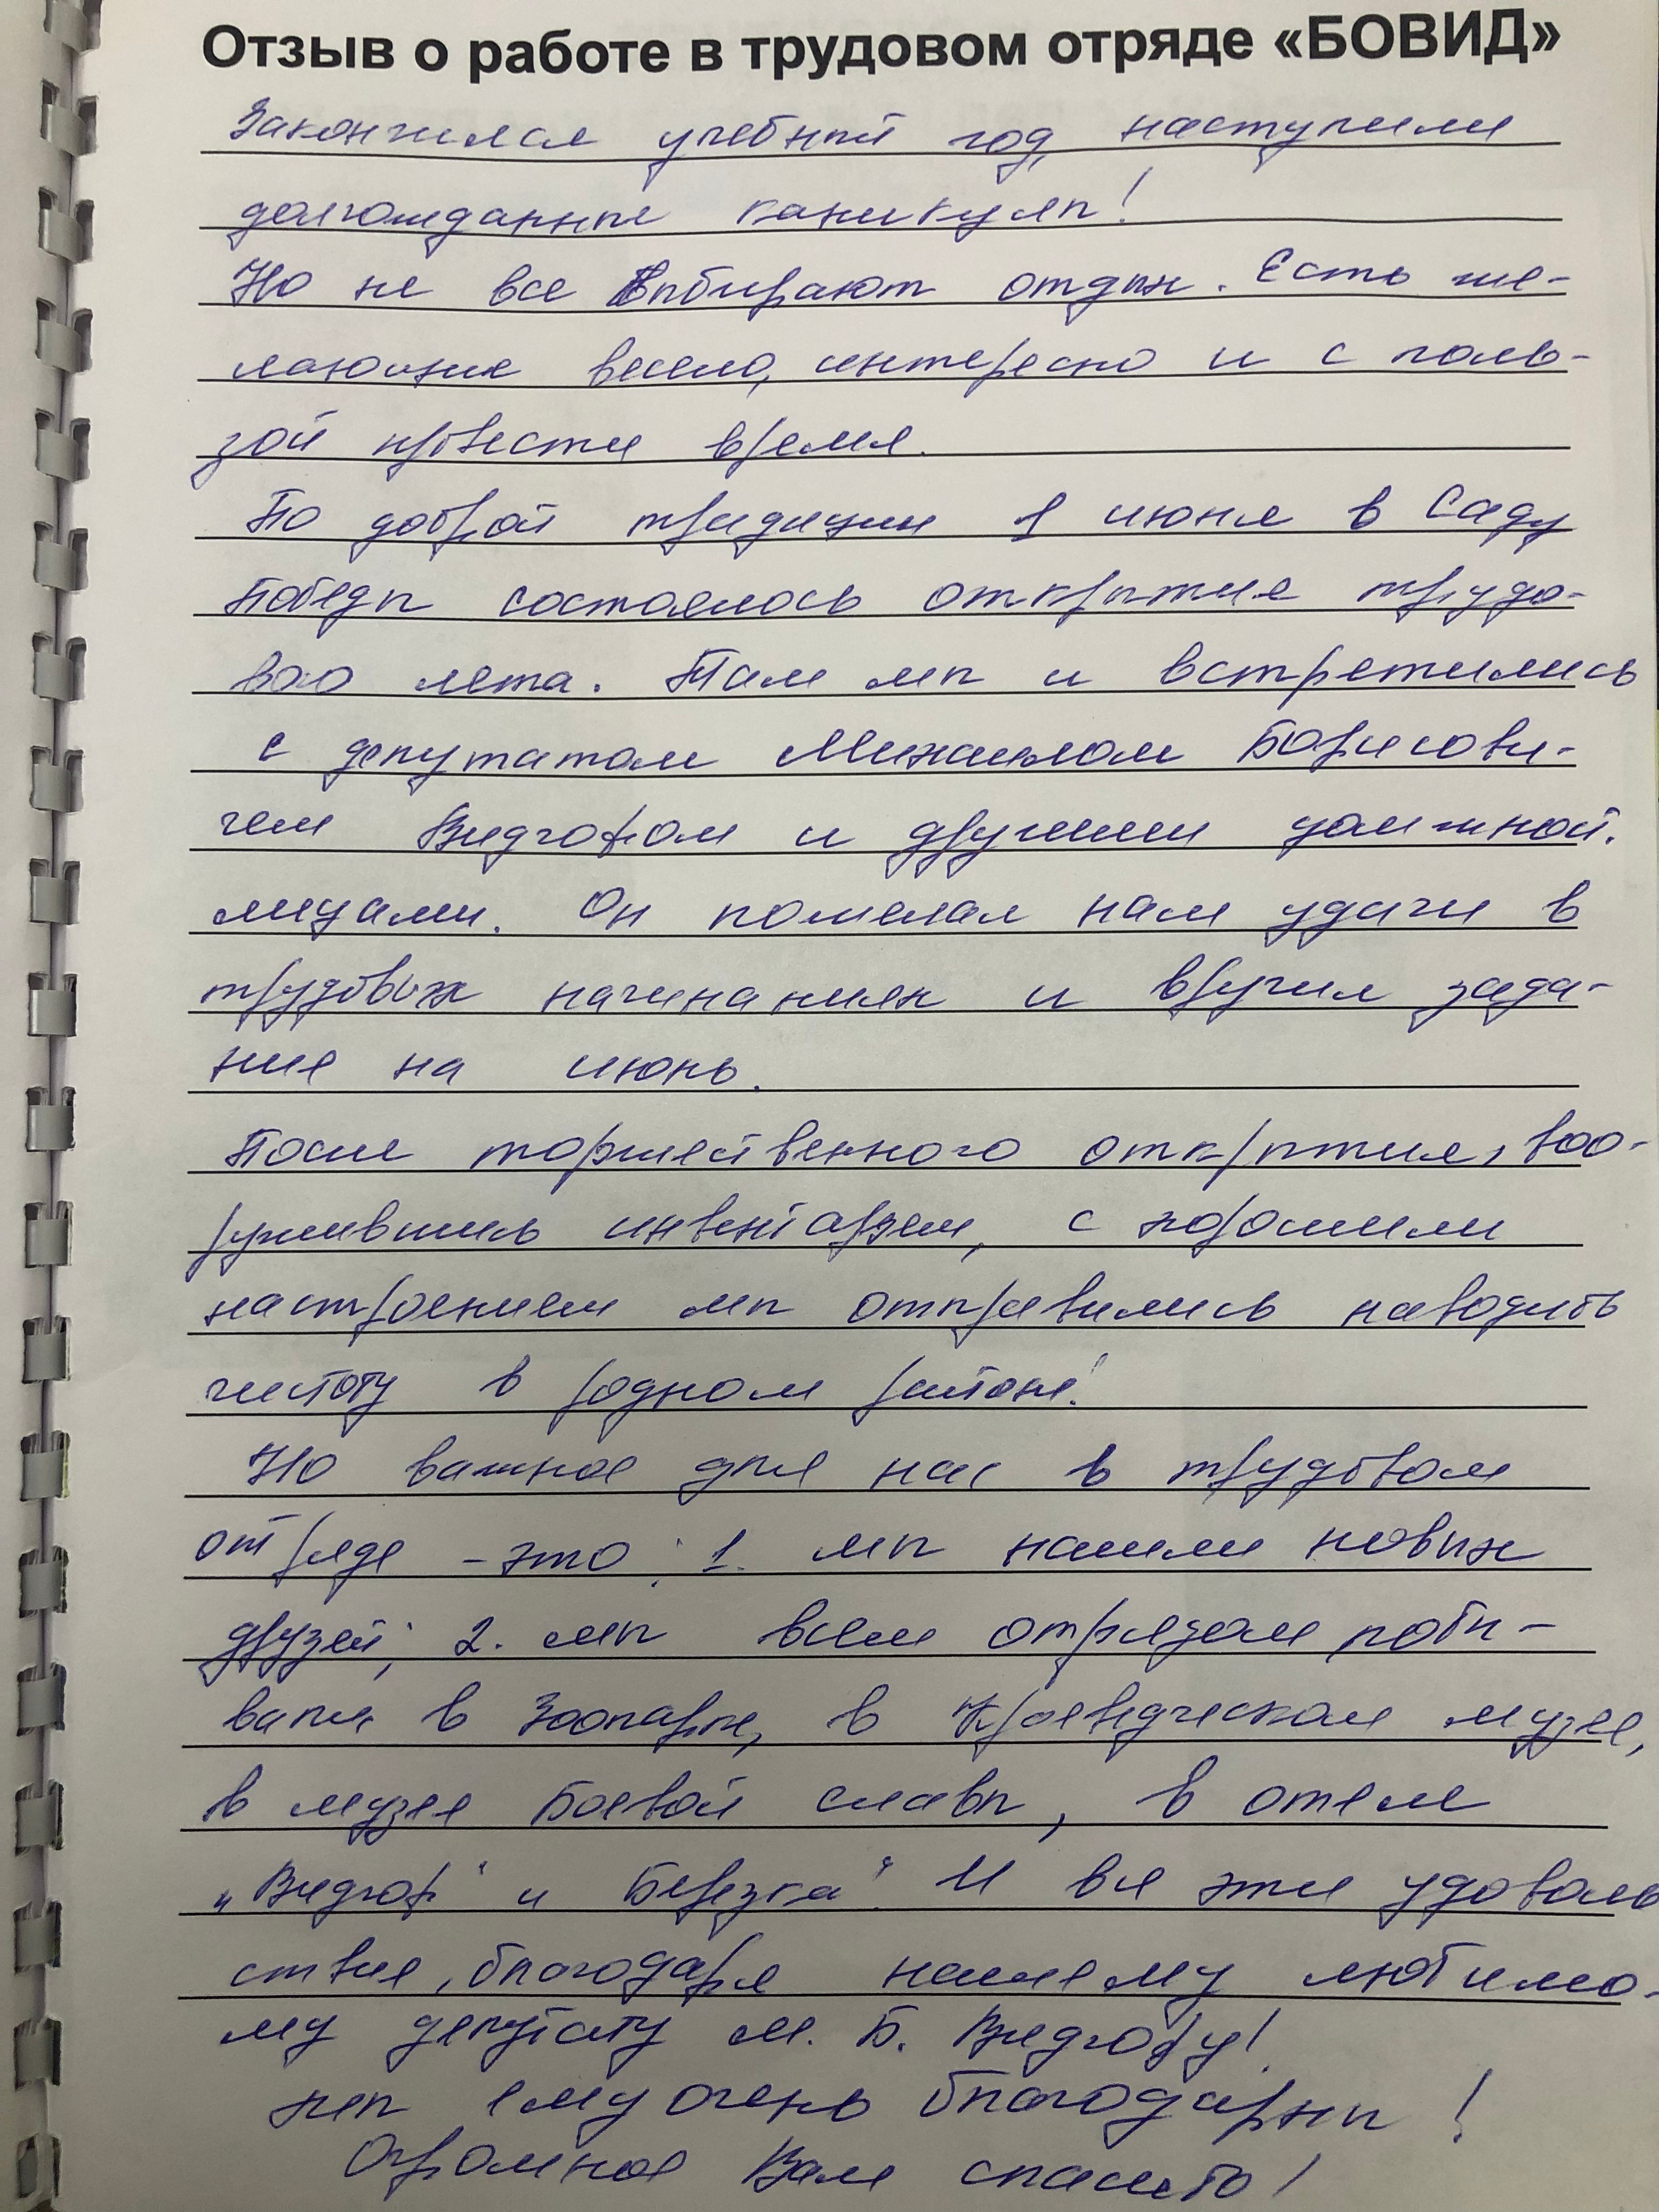 Отзыв о работе в трудовом отряде «БОВИД»
Закончился учебный год, наступили
долгожданные каникулы!
Но не все выбирают отдых. Есть же-
лающие весело, интересно и с поль-
зой провести время.
По доброй традиции 1 июня в Саду
Победы состоялось открытие трудо-
вого лета. Там мы и встретились
с депутатом Михаилом Борисови-
чем Видгофом и другими
лицами. Он пожелал нам удачи в
трудовых начинаниях и вручил зада-
ние на июнь.
После торжественного открытия, воо-
ружившись инвентарем, с хорошим
настроением мы отправились наводить
чистоту в родном районе!
Но важное для нас в трудовом
отряде - это: 1. мы нашли новых
друзей; 2. мы всем отрядом побы-
вали в Зоопарке, в Краеведческом музее,
в музее Боевой славы, в отеле
„Видгоф" и Березка". И все эти удоволь
ствие, благодаря нашему любимо-
му депутату М. Б. Видгофу!
Мы ему очень благодарны!
Огромное Вам спасибо!